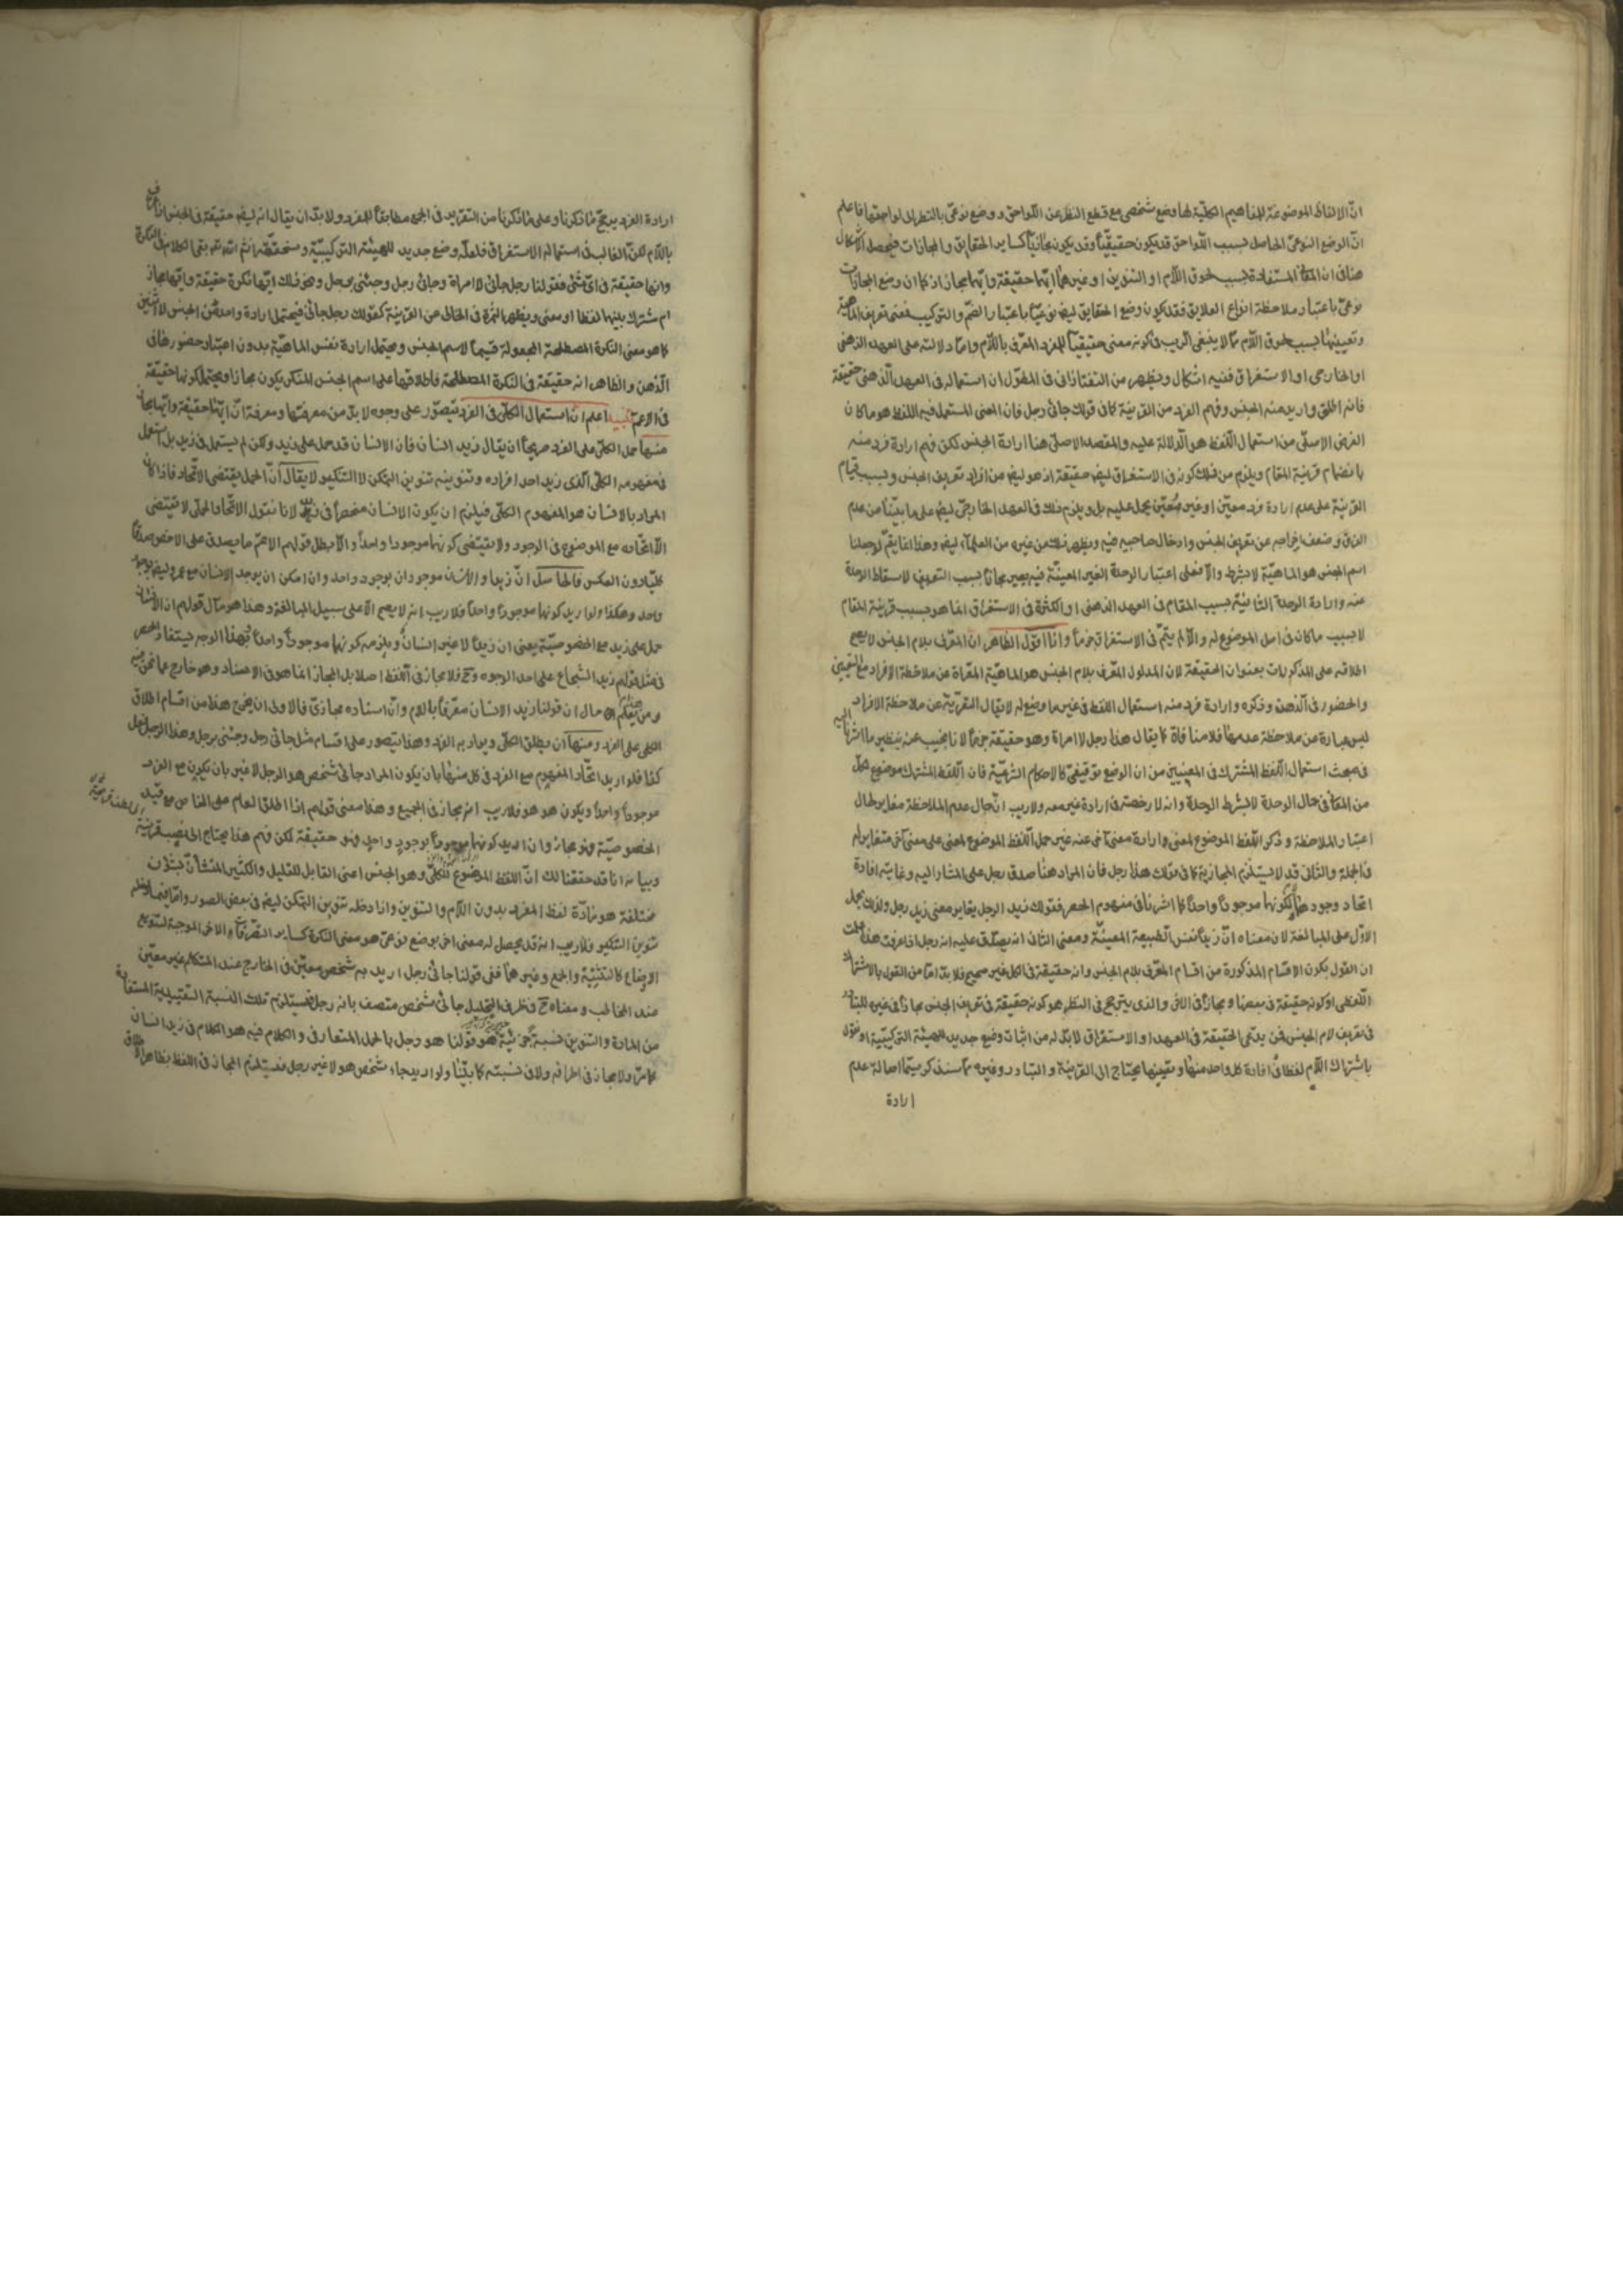 انّ الالفاظ الموضوعة للمفاهيم الكليّة لها وضع شخصى مع قطع النظر عن اللواحق و وضع نوعىّ بالنظر الى لواحقها فاعلم
انّ الوضع النوعىّ الحاصل بسبب اللّواحق قد يكون حقيقيّا وقد يكون مجازيّا كساير الحقايق والمجازات فيحصل الاشكال
هنا فى ان المعانى المستفادة بسبب لحوق اللّام او التنوين او غيرهما ايّها حقيقة وايّها مجاز اذ كما ان وضع المجازات
نوعىّ باعتبار ملاحظة انواع العلايق فقد يكون وضع الحقايق ايض نوعيّا باعتبار الضمّ والتركيب فمعنى تعريف الماهيّة
وتعيينها بسبب لحوق اللّام ممّا لا ينبغى الرّيب فى كونه معنى حقيقيّا للمفرد المعرّف باللّام وامّا دلالته على العهد الذهنى
او الخارجى او الاستغراق ففيه اشكال ويظهر من التفتازانى فى المطوّل ان استعماله فى العهد الذّهنى حقيقة
فانه اطلق واريد منه الجنس وفهم الفرد من القرينة كما فى قولك جائنى رجل فان المعنى المستعمل فيه اللفظ هو ما كان
الغرض الاصلىّ من استعمال اللّفظ هو الدّلالة عليه والمقصد الاصلىّ هنا ارادة الجنس لكن فهم ارادة فرد منه
بانضمام قرينة المقام ويلزم من ذلك كونه فى الاستغراق ايض حقيقة اذ هو ايض من افراد تعريف الجنس وبسبب قيام
القرينة على عدم ارادة فرد معيّن او غير معيّن يحمل عليه بل ويلزم ذلك فى العهد الخارجىّ ايض على ما بيّنا من عدم
الفرق وضعف اخراجه عن تعريف الجنس وادخال صاحبيه فيه ويظهر ذلك من غيره من العلماء ايض وهذا انما يتمّ لو جعلنا
اسم الجنس هو الماهيّة لا بشرط والّا فعلى اعتبار الوحدة الغير المعيّنة فيه يصير مجازا بسبب التعريف لاسقاط الوحدة
عنه وارادة الوحدة الثانية بسبب المقام فى العهد الذهنى او الكثرة فى الاستغراق انما هو بسبب قرينة المقام
لا بسبب ما كان فى اصل الموضوع له والّا لم يتمّ فى الاستغراق جزما وانا اقول الظاهر ان المعرّف بلام الجنس لا يصح
اطلاقه على المذكورات بعنوان الحقيقة لان المدلول المعرّف بلام الجنس هو الماهيّة المعرّاة عن ملاحظة الافراد مع التعيين
والحضور فى الذّهن وذكره وارادة فرد منه استعمال اللفظ فى غير ما وضع له لا يقال التعرية عن ملاحظة الافراد
ليس عبارة عن ملاحظة عدمها فلا منافاة كما يقال هذا رجل لا امراة وهو حقيقة جزما لانا نجيب عنه بنظير ما اشرنا اليه
فى مبحث استعمال اللّفظ المشترك فى المعنيين من ان الوضع توقيفىّ كالاحكام الشرعيّة فان اللّفظ المشترك موضوع لكلّ
من المعانى فى حال الوحدة لا بشرط الوحدة وانه لا رخصة فى ارادة غيره معه ولا ريب انّ حال عدم الملاحظة مغاير لحال
اعتبار الملاحظة وذكر اللّفظ الموضوع لمعنى وارادة معنى آخر عنه غير حمل اللّفظ الموضوع لمعنى على معنى آخر متغاير له
فى الجملة والثانى قد لا يستلزم المجازية كما فى قولك هذا رجل فان المراد هنا صدق رجل على المشار اليه وغايته افادة
اتحاد وجودهما لكونهما موجودا واحدا كما اشرنا فى مفهوم الحصر فقولك زيد الرجل يغاير معنى زيد رجل ولذلك يحمل
الاوّل على المبالغة لان معناه انّ زيدا نفس الطبيعة المعيّنة ومعنى الثانى انه يصدق عليه انه رجل اذا عرفت هذا علمت
ان القول بكون الاقسام المذكورة من اقسام المعرّف بلام الجنس وانه حقيقة فى الكل غير صحيح فلا بدّ امّا من القول بالاشتراك
اللّفظى او كونه حقيقة فى بعضها ومجازا فى الاخر والذى يترجح فى النظر هو كونه حقيقة فى تعريف الجنس مجازا فى غيره للتبادر
فى تعريف لام الجنس فمن يدّعى الحقيقة فى العهد او الاستغراق لا بدّ له من اثبات وضع جديد للهيئة التركيبيّة او يقول
باشتراك اللّام لفظا فى افادة كل واحد منها وتعيينها يحتاج الى القرينة والتبادر وغيره ممّا سنذكر سيّما اصالة عدم
ارادة
ارادة الفرد يرجّح ما ذكرنا وعلى ما ذكرنا من التقريب فى الجمع مطابقا للمفرد ولا بدّ ان يقال انه ايض حقيقة فى الجنس اذا عرّف
باللّام لكنّ الغالب فى استعماله الاستغراق فلعلّه وضع جديد للهيئة التركيبيّة وسنحقّقه انشاء اللّه تعالى بقى الكلام فى النكرة
وانها حقيقة فى اىّ شىء فقولنا رجل جائنى لا امراة وجائنى رجل وجئنى برجل ونحو ذلك ايّها نكرة حقيقة وايّها مجاز
ام مشترك بينها لفظا او معنى ويظهر الثمرة فى الخالى عن القرينة كقولك رجل جائنى فيحتمل ارادة واحد من الجنس لا اثنين
كما هو معنى النكرة المصطلحة المجعولة قسيما لاسم الجنس ويحتمل ارادة نفس الماهيّة بدون اعتبار حضورها فى
الذّهن والظاهر انه حقيقة فى النكرة المصطلحة فاطلاقها على اسم الجنس المنكر يكون مجازا ويحتمل كونها حقيقة
فى الاعمّ تنبيه اعلم ان استعمال الكلّى فى الفرد يتصوّر على وجوه لا بدّ من معرفتها ومعرفة انّ ايّها حقيقة وايّها مجاز
منها حمل الكلّى على الفرد صريحا ان يقال زيد انسان فان الانسان قد حمل على زيد ولكن لم يستعمل فى زيد بل استعمل
فى مفهومه الكلّى الّذى زيد احد افراده وتنوينه تنوين التمكن لا التنكير لا يقال انّ الحمل يقتضى الاتّحاد فاذا كان
المراد بالانسان هو المفهوم الكلّى فيلزم ان يكون الانسان منحصرا فى زيد لانا نقول الاتّحاد الحملى لا يقتضى
الّا اتّحاده مع الموضوع فى الوجود ولا يقتضى كونهما موجودا واحدا والّا لبطل قولهم الاعمّ ما يصدق على الاخص صدقا
كليّا دون العكس فالحاصل انّ زيدا والانسان موجودان بوجود واحد وان امكن ان يوجد الانسان مع عمرو ايض بوجود
واحد وهكذا ولو اريد كونهما موجودا واحدا فلا ريب انه لا يصح الّا على سبيل المبالغة وهذا هو مآل قولهم ان الانسان
حمل على زيد مع الخصوصيّة يعنى ان زيدا لا غير انسان ويلزمه كونهما موجودا واحدا وبهذا الوجه يستفاد الحصر
فى مثل قولهم زيد الشجاع على احد الوجوه وح فلا مجاز فى اللّفظ اصلا بل المجاز انما هو فى الاسناد وهو خارج عما نحن فيه
ومن هنا يعلم حال ان قولنا زيد الانسان معرّفا باللام وانّ اسناده مجازىّ فالاولى ان يخرج هذا من اقسام اطلاق
الكلى على الفرد ومنها ان يطلق الكلّى ويراد به الفرد وهذا يتصور على اقسام مثل جائنى رجل وجئنى برجل وهذا الرجل فعل
كذا فلو اريد اتّحاد المفهوم مع الفرد فى كل منها بان يكون المراد جائنى شخص هو الرجل لا غير بان يكون مع الفرد
موجودا واحدا ويكون هو هو فلا ريب انه مجاز فى الجميع وهذا معنى قولهم اذا اطلق العام على الخاص مع قيد
الخصوصيّة فهو مجاز وان اريد كونهما موجودا بوجود واحد فهو حقيقة لكن فهم هذا يحتاج الى نصب قرينة
وبيانه انا قد حققنا لك انّ اللفظ الموضوع للكلّى وهو الجنس اعنى القابل للقليل والكثير المتشانّ بشؤن
مختلفة هو مادّة لفظ المفرد بدون اللّام والتنوين واذا دخله تنوين التمكن ايض فى بعض الصور وامّا فيما دخله
تنوين التنكير فلا ريب انه قد يحصل له معنى اخر بوضع نوعىّ هو معنى النكرة كساير التصرّفات الاخر الموجبة لتنويع
الاوضاع كالتثنية والجمع وغيرهما ففى قولنا جائنى رجل اريد به شخص معيّن فى الخارج عند المتكلم غير معيّن
عند المخاطب ومعناه ح فى ظرف التحليل جائنى شخص متصف بانه رجل فيستلزم تلك النسبة التقييدية المستفادة
من المادة والتنوين نسبة خبريّة هو قولنا هو رجل بالحمل المتعارفى والكلام فيه هو الكلام فى زيد انسان
كما مرّ ولا مجاز فى اطرافه ولا فى نسبته كما بيّنا ولو اريد جاء شخص هو لا غير رجل فيستلزم المجاز فى اللفظ بظاهر الاطلاق